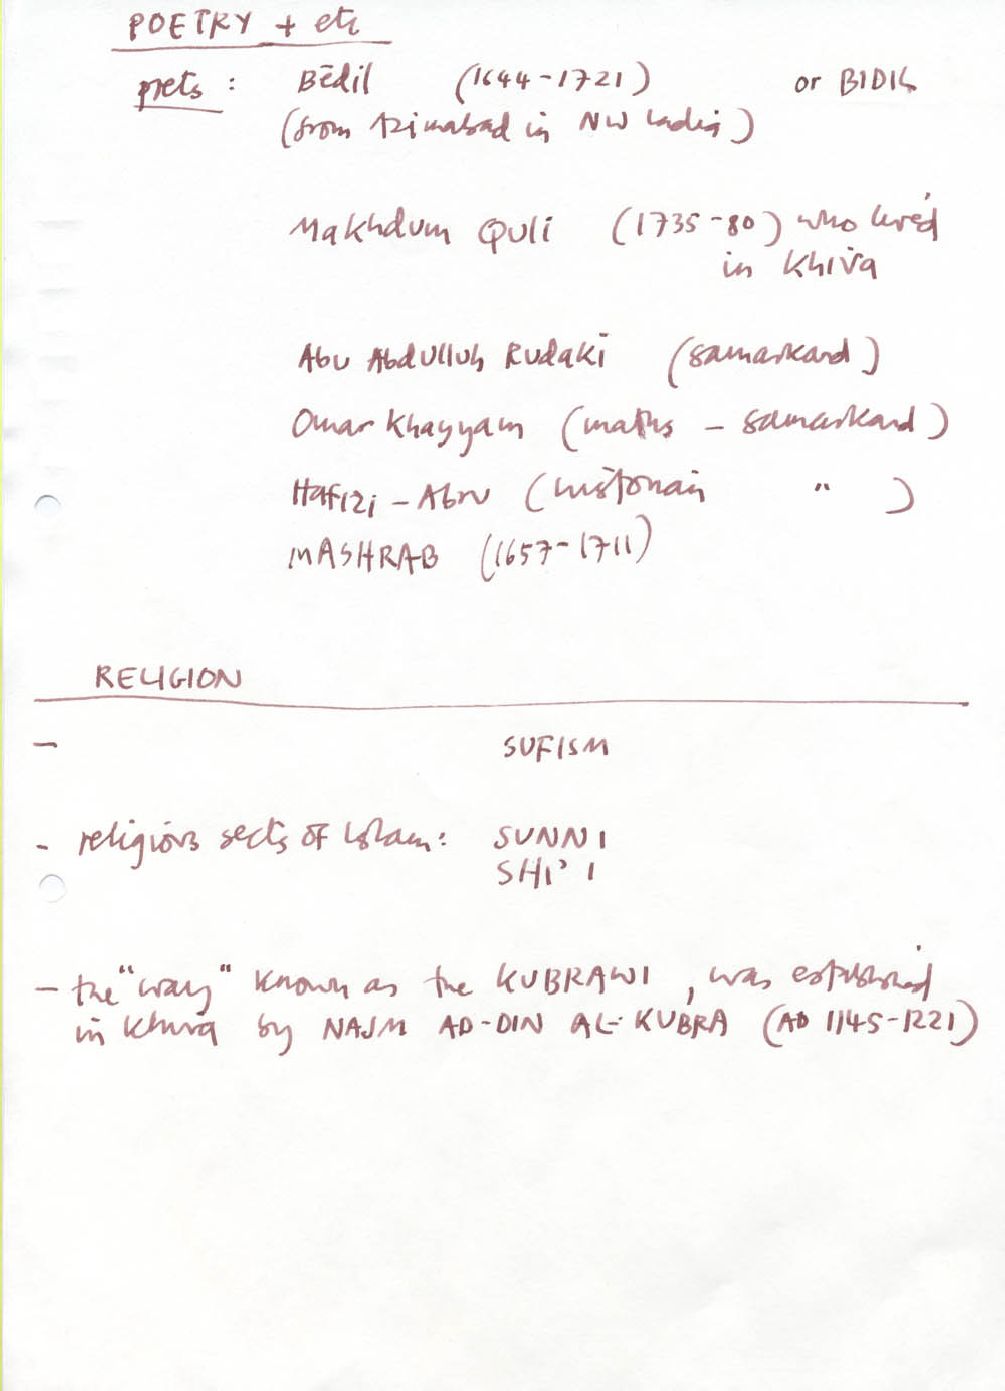 POETRY + etc
poets : Bēdil (1644-1721) or BIDIL
(from Azimabad in NW India)
Makhdum Quli (1735-80) who lived
in Khiva
Abu Abdulluh Rudaki (Samarkand)
Omar Khayyam (maths - Samarkand)
Hafizi - Abru (historian " )
MASHRAB (1657-1711)
RELIGION
- SUFISM
- religious sects of Islam: SUNNI
SHI'I
- the "way" known as the KUBRAWI, was established
in Khiva by NAJM AD-DIN AL-KUBRA (AD 1145-1221)